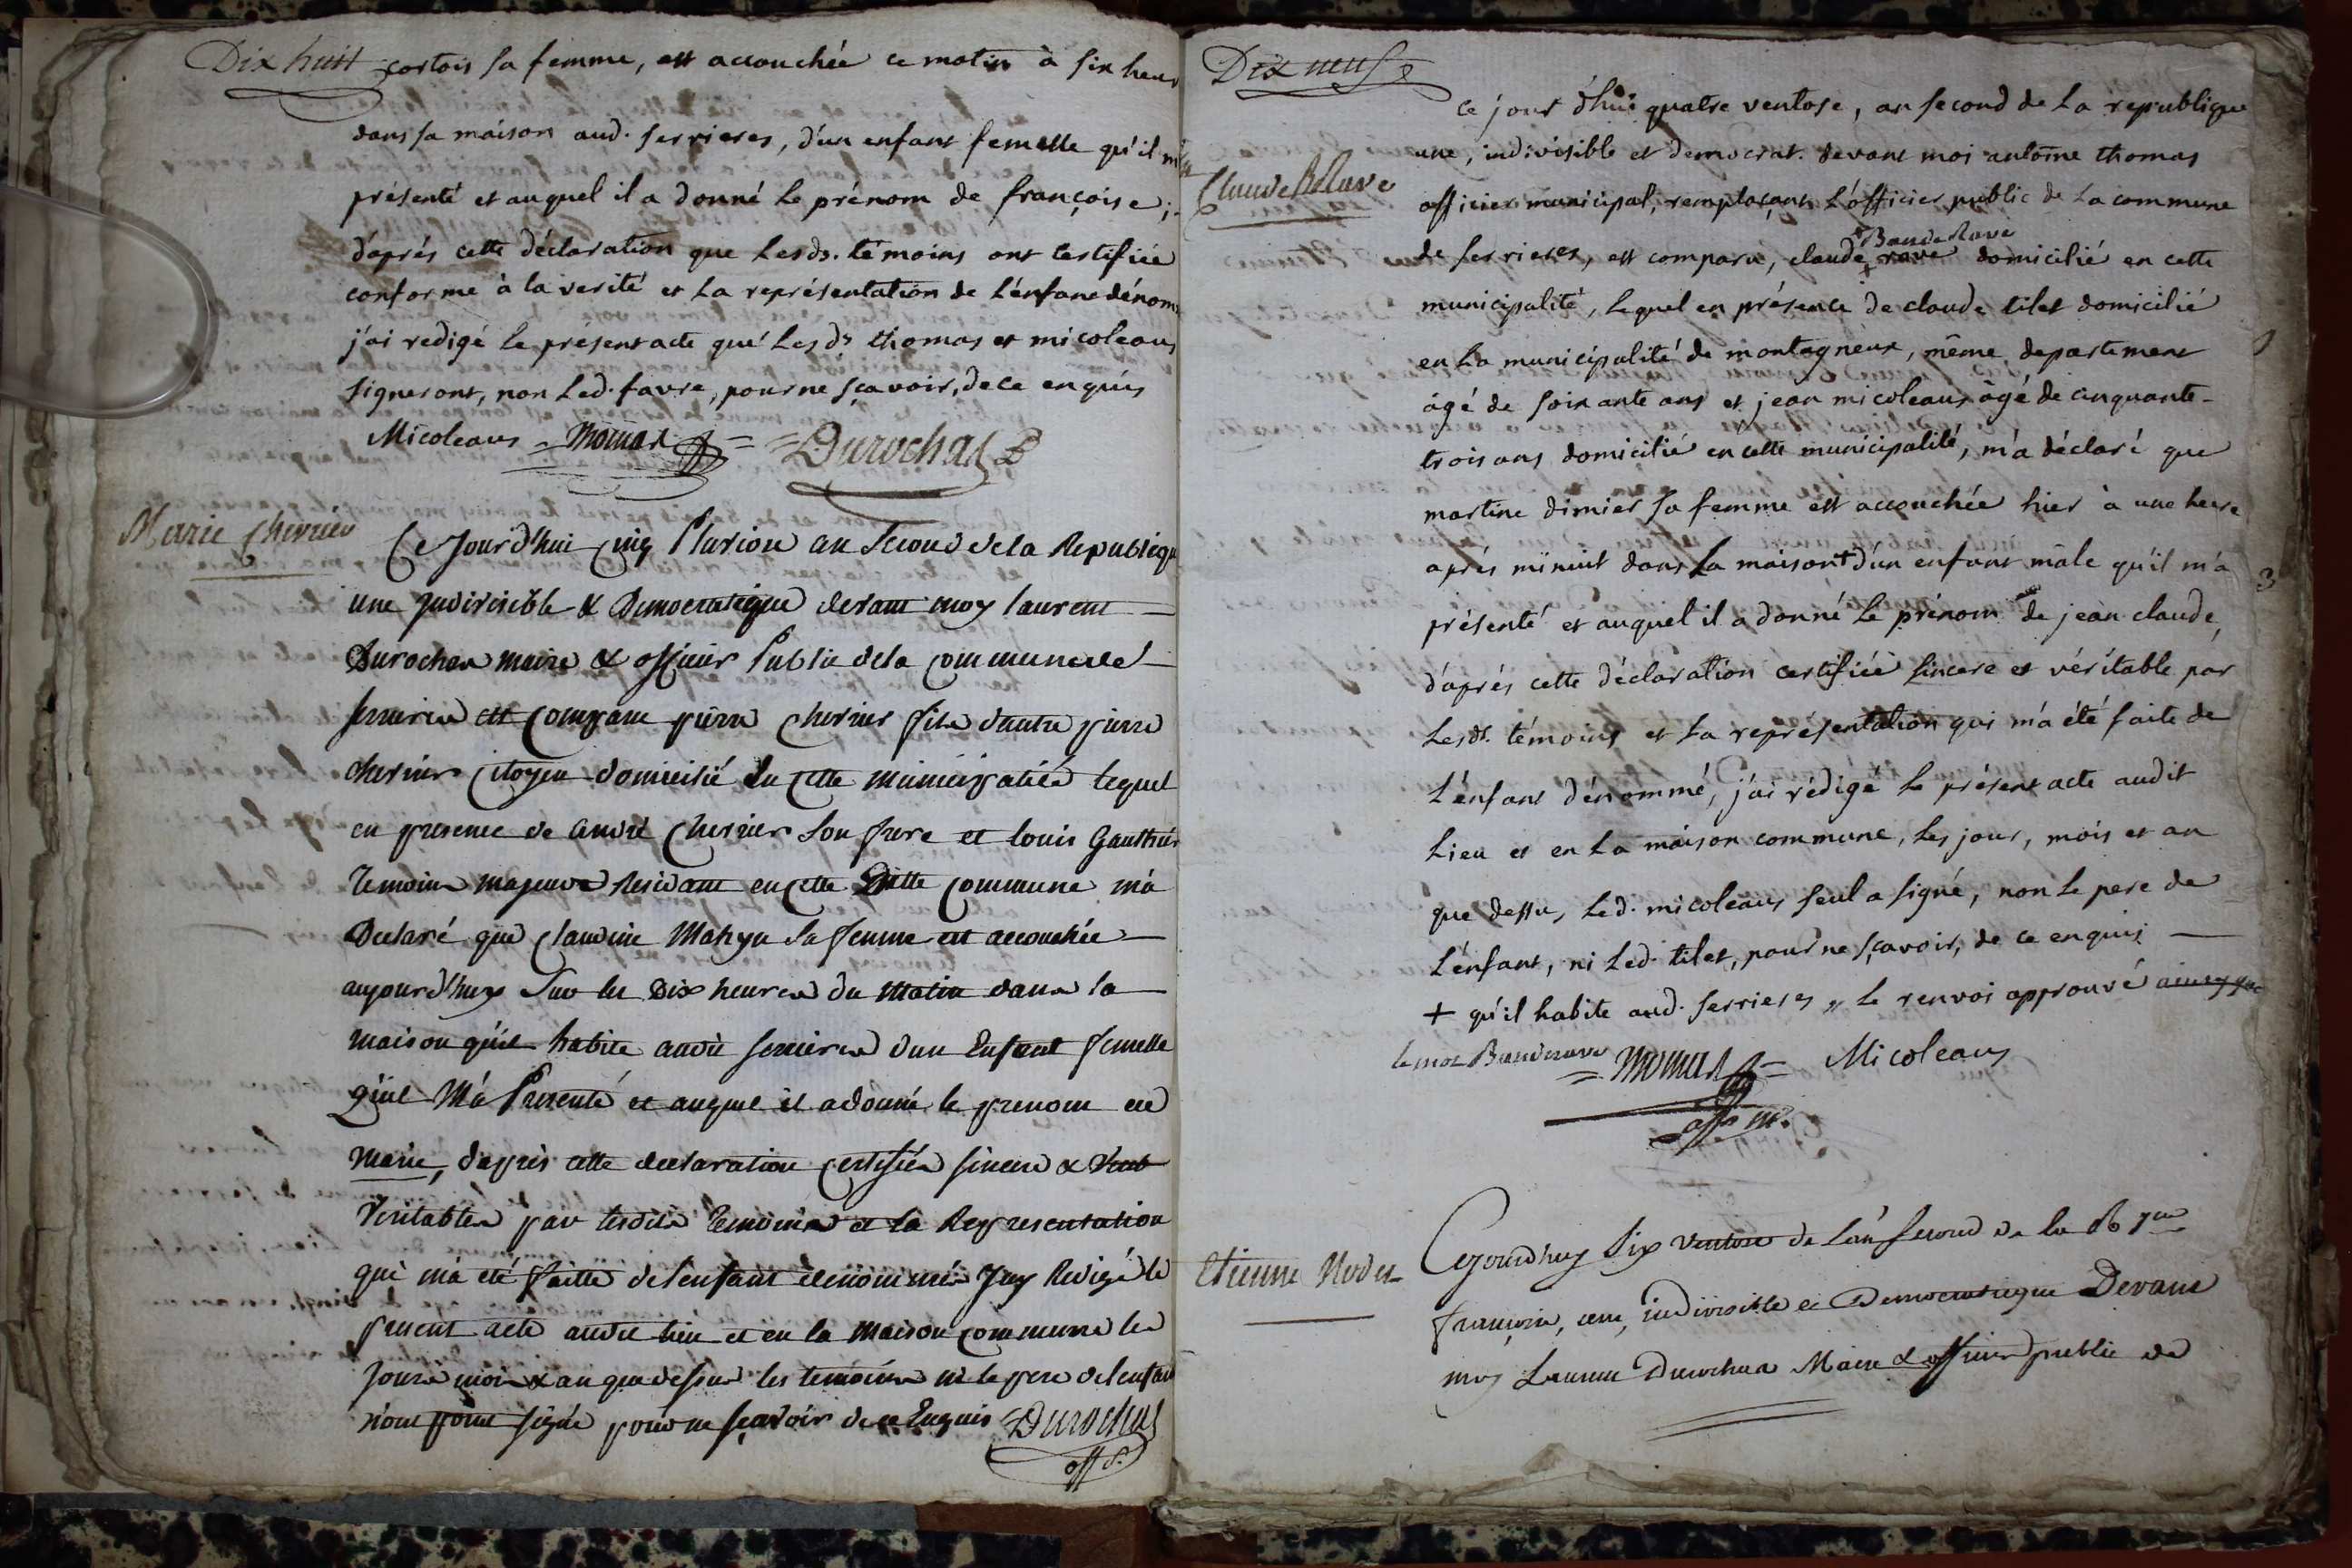 Dix huit
cortois sa femme, est accouchée ce matin à six heur
dans sa maison aud. serrieres, d'un enfant femelle qu'il m'a
présenté et auquel il a donné le prénom de françoise;
d'aprés cette déclaration que lesds. témoins ont certifiée
conforme à la verité et la représentation de l'énfant dénom
j'ai redigé le présent acte qué lesds thomas et micoleaus
signeront, non led. favre, pour ne sçavoir, de ce enquis
Micoleaus thomas Durochas
Marie chevrier
Ce Jourd'hui Cinq Pluviou an Second dela Republiqu
une Indivisible & Democratique devant moy laurent
Durochas maire & officier Public dela commune de
serrieres est Comparu pierre chervier fils d'autre pierre
chervier Citoyen domicilié En Cette municipalité lequel
en presence de andré Chervier Son frere et louis Gauthier
Temoins majeurs Residant en Cette Ditte Commune m'a
Declaré que Claudine Mahyu Sa femme est accouchée
aujourd'huy Sur les Dix heures du Matin dans la
maison qu'il habite audit serrieres d'un Enfant femelle
qu'il M'a Presenté et auquel il a donné le prenom de
marie, d'aprés cette declaration Certifiée sincere & Verit
Veritables par lesdits Temoins et la Representation
qui m'a eté faitte de l'enfant denommée J'ay Redigé le
present acte audit lieu et en la maison Commune les
Jours mois & an que dessus les temoins ni le pere de l'enfant
n'ont point signé pour ne sçavoir de ce Enquis Durochas
off p.
Dix neuf
Claude BdRave
ce jour d'hui quatre ventose, an second de la republique
une, indivisible et democrat. devant moi antoine thomas
officier municipal, remplaçant l'officier public de la commune
BandeRave
de serrieres, est comparu, claude rave domicilié en cette
municipalité, lequel en présence de claude tilet domicilié
en la municipalité de montagneux, même departement
âgé de soixante ans et jean micoleaus âgé de cinquante-
trois ans domicilié en cette municipalité, m'a déclaré que
martine dimier sa femme est accouchée hier à une heure
aprés minuit dans la maison + d'un enfant mâle qu'il m'a
présenté et auquel il a donné le prénom de jean claude,
d'aprés cette déclaration certifiée sincere et véritable par
lesds. témoins et la représentation qui m'a été faite de
l'énfant dénommé, j'ai rédigé le présent acte audit
lieu et en la maison commune, les jour, mois et an
que dessus, led. micoleaus seul a signé, non le pere de
l'énfant, ni led. tilet, pour ne sçavoir, de ce enquis
+ qu'il habite aud. serrieres, le renvoi approuvé ainsy que
le mot Banderave thomas Micoleaus
offr m.
Etienne Nodet
Cejourdhuy six ventose de l'an second de la
françoise, une, indivisible et Democratique Devant
moy Laurent Durochas Maire & officier public de